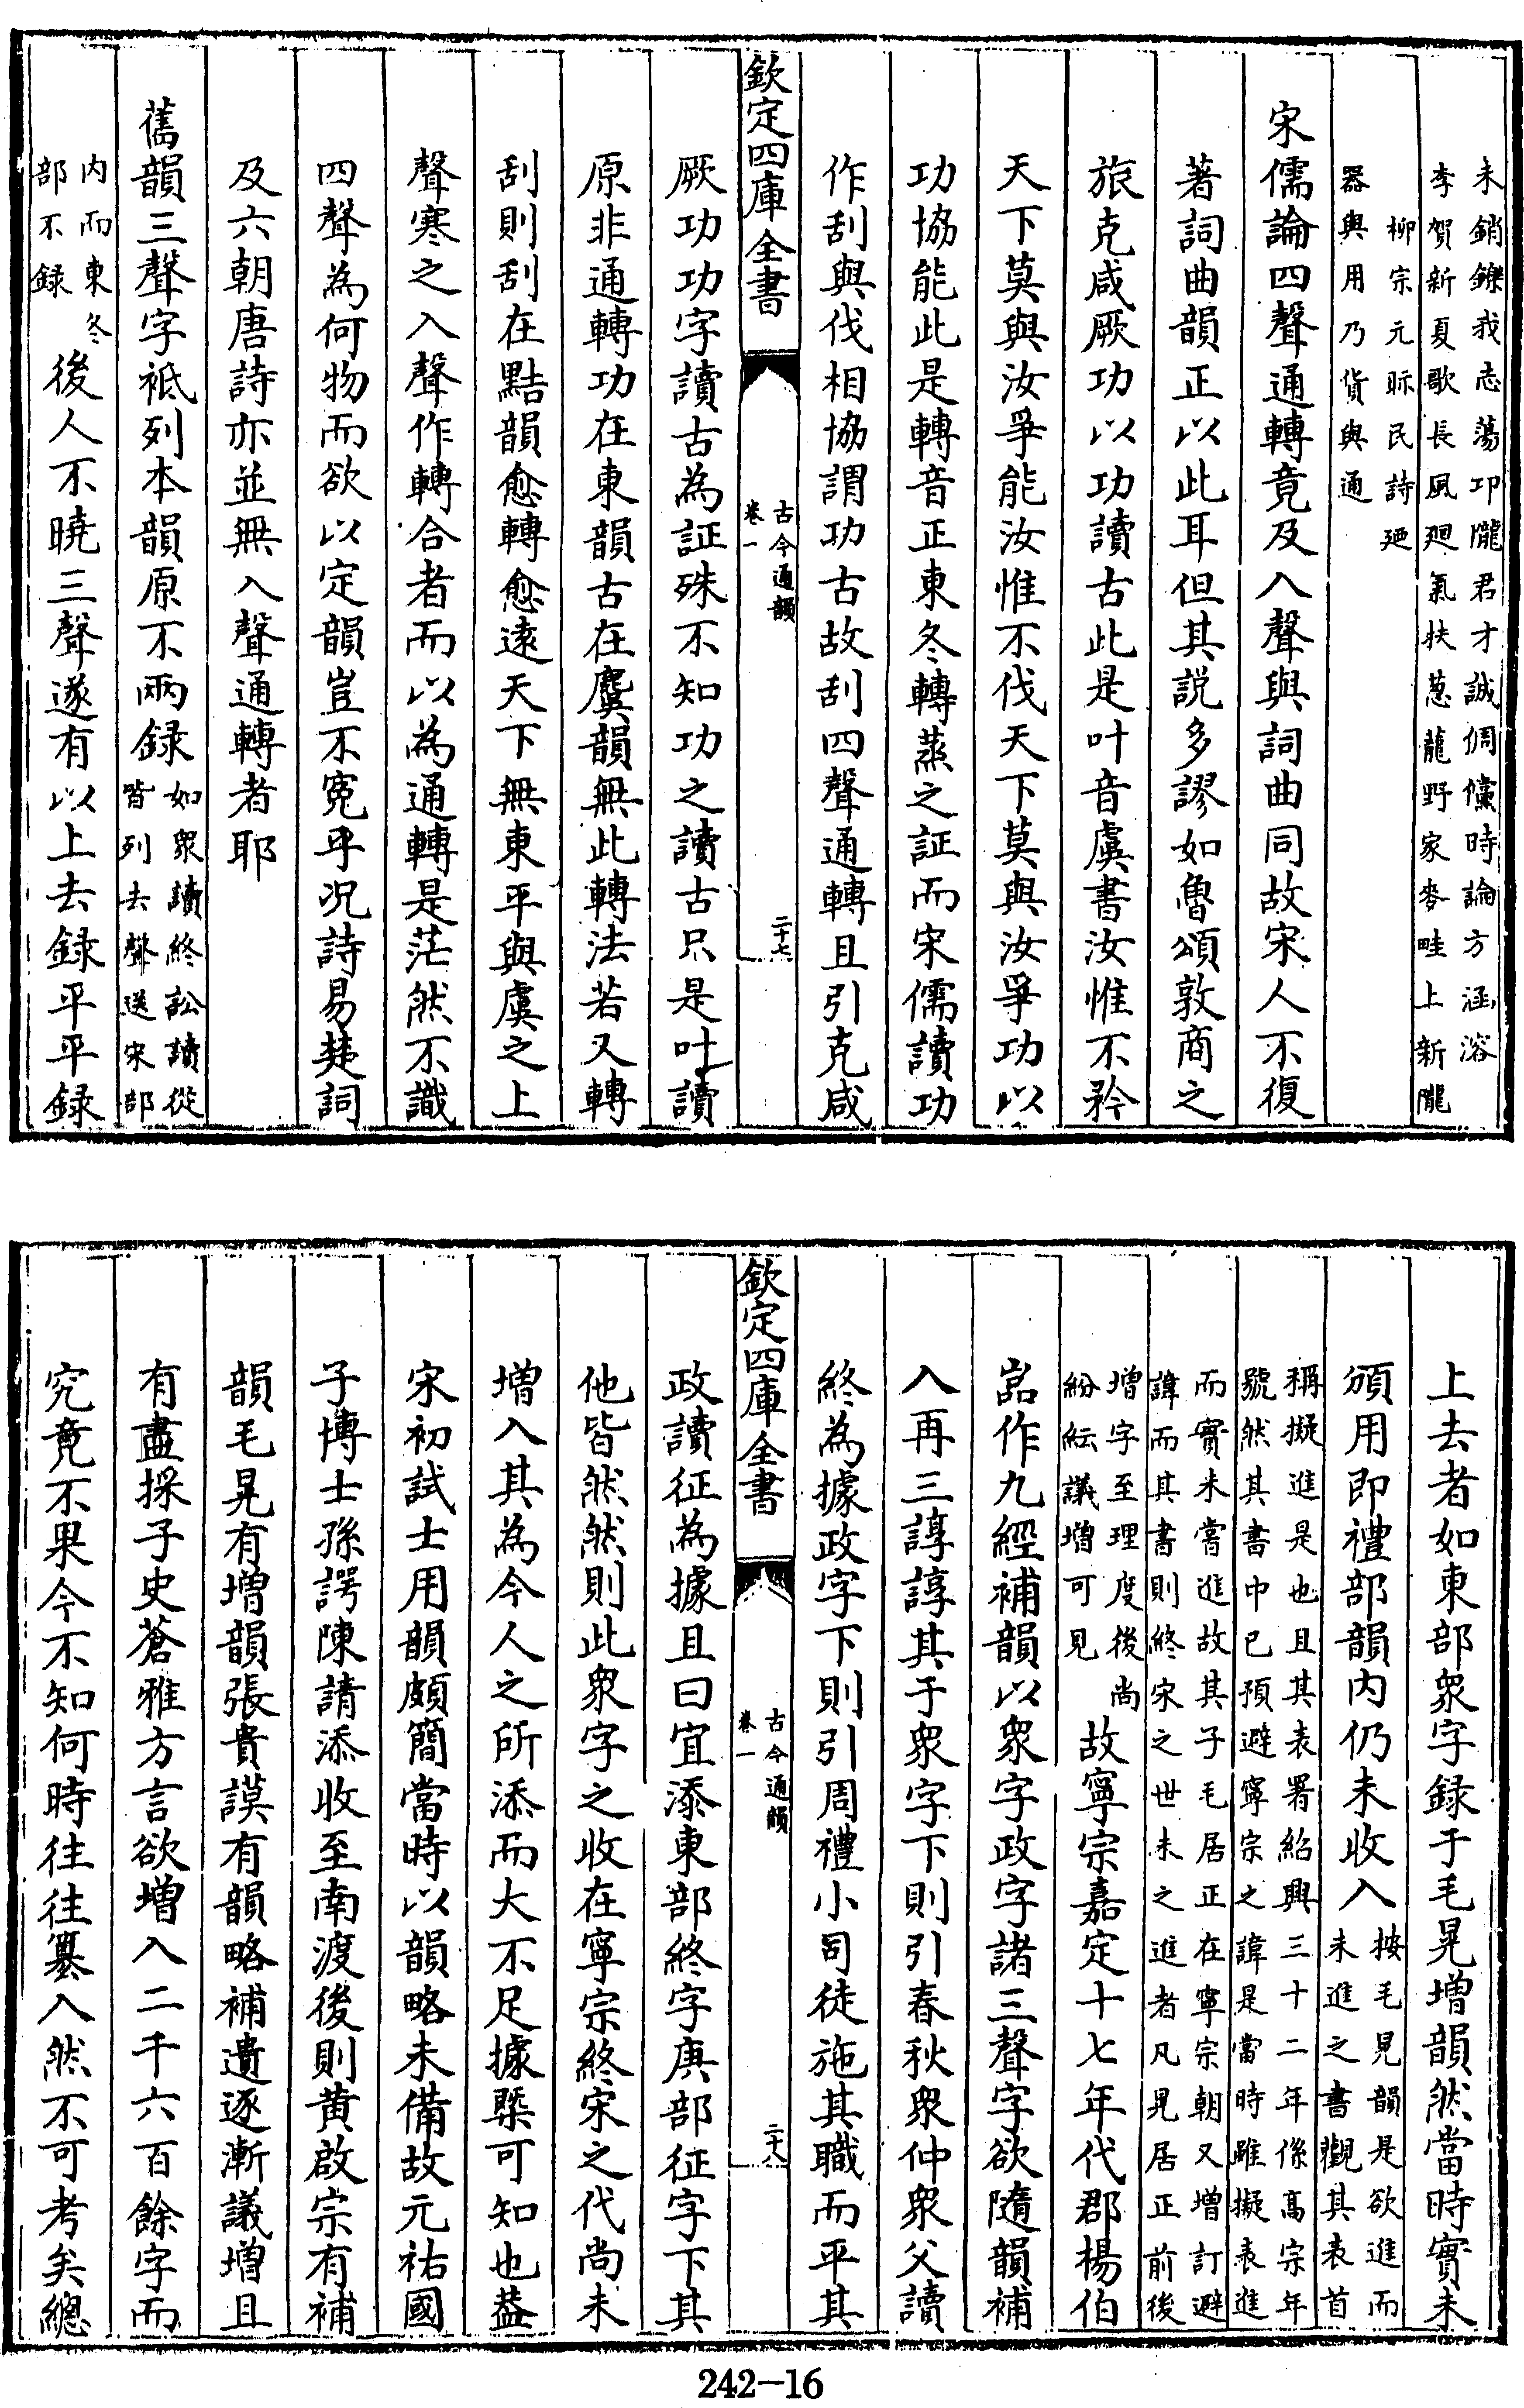 未銷鑠我志蕩卭隴君才誠倜儻時論方涵溶
李賀新夏歌長風廻氣扶葱蘢野家麥畦上新隴
柳宗元眎民詩廼
器與用乃貨與通
宋儒論四聲通轉竟及入聲與詞曲同故宋人不復
著詞曲韻正以此耳但其説多謬如魯頌敦商之
旅克咸厥功以功讀古此是叶音虞書汝惟不矜
天下莫與汝爭能汝惟不伐天下莫與汝爭功以
功協能此是轉音正東冬轉蒸之証而宋儒讀功
作刮與伐相協謂功古故刮四聲通轉且引克咸
欽定四庫全書
古今通韻
卷一
二十七
厥功功字讀古為証殊不知功之讀古只是叶讀
原非通轉功在東韻古在麌韻無此轉法若又轉
刮則刮在黠韻愈轉愈遠天下無東平與虞之上
聲寒之入聲作轉合者而以為通轉是茫然不識
四聲為何物而欲以定韻豈不寃乎况詩易楚詞
及六朝唐詩亦並無入聲通轉者耶
舊韻三聲字祗列本韻原不兩録
如衆讀終訟讀從
皆列去聲送宋部
内而東冬
部不録
後人不曉三聲遂有以上去録平平録
上去者如東部衆字録于毛晃增韻然當時實未
頒用即禮部韻内仍未收入
按毛晃韻是欲進而
未進之書觀其表首
稱擬進是也且其表署紹興三十二年係高宗年
號然其書中已預避寧宗之諱是當時雖擬表進
而實未嘗進故其子毛居正在寧宗朝又增訂避
諱而其書則終宋之世未之進者凡晃居正前後
增字至理度後尚
紛紜議增可見
故寧宗嘉定十七年代郡楊伯
嵓作九經補韻以衆字政字諸三聲字欲隨韻補
入再三諄諄其于衆字下則引春秋衆仲衆父讀
終為據政字下則引周禮小司徒施其職而平其
欽定四庫全書
古今通韻
卷一
二十八
政讀征為據且曰宜添東部終字庚部征字下其
他皆然然則此衆字之收在寧宗終宋之代尚未
增入其為今人之所添而大不足據槩可知也葢
宋初試士用韻頗簡當時以韻略未備故元祐國
子博士孫諤陳請添收至南渡後則黄啟宗有補
韻毛晃有增韻張貴謨有韻略補遺逐漸議增且
有盡採子史蒼雅方言欲增入二千六百餘字而
究竟不果今不知何時往往纂入然不可考矣總
242-16